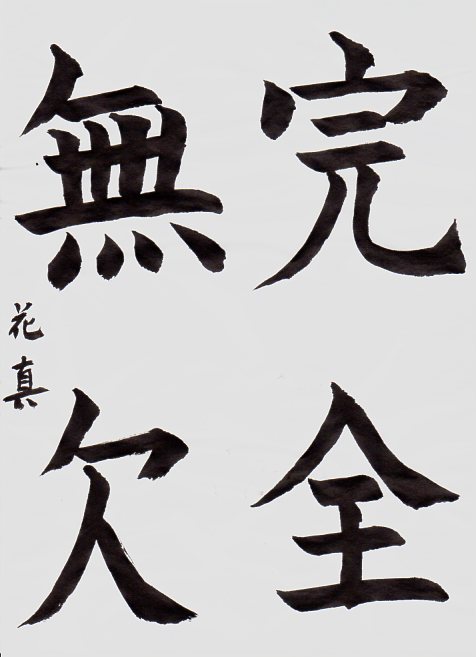 完全
無欠
花真